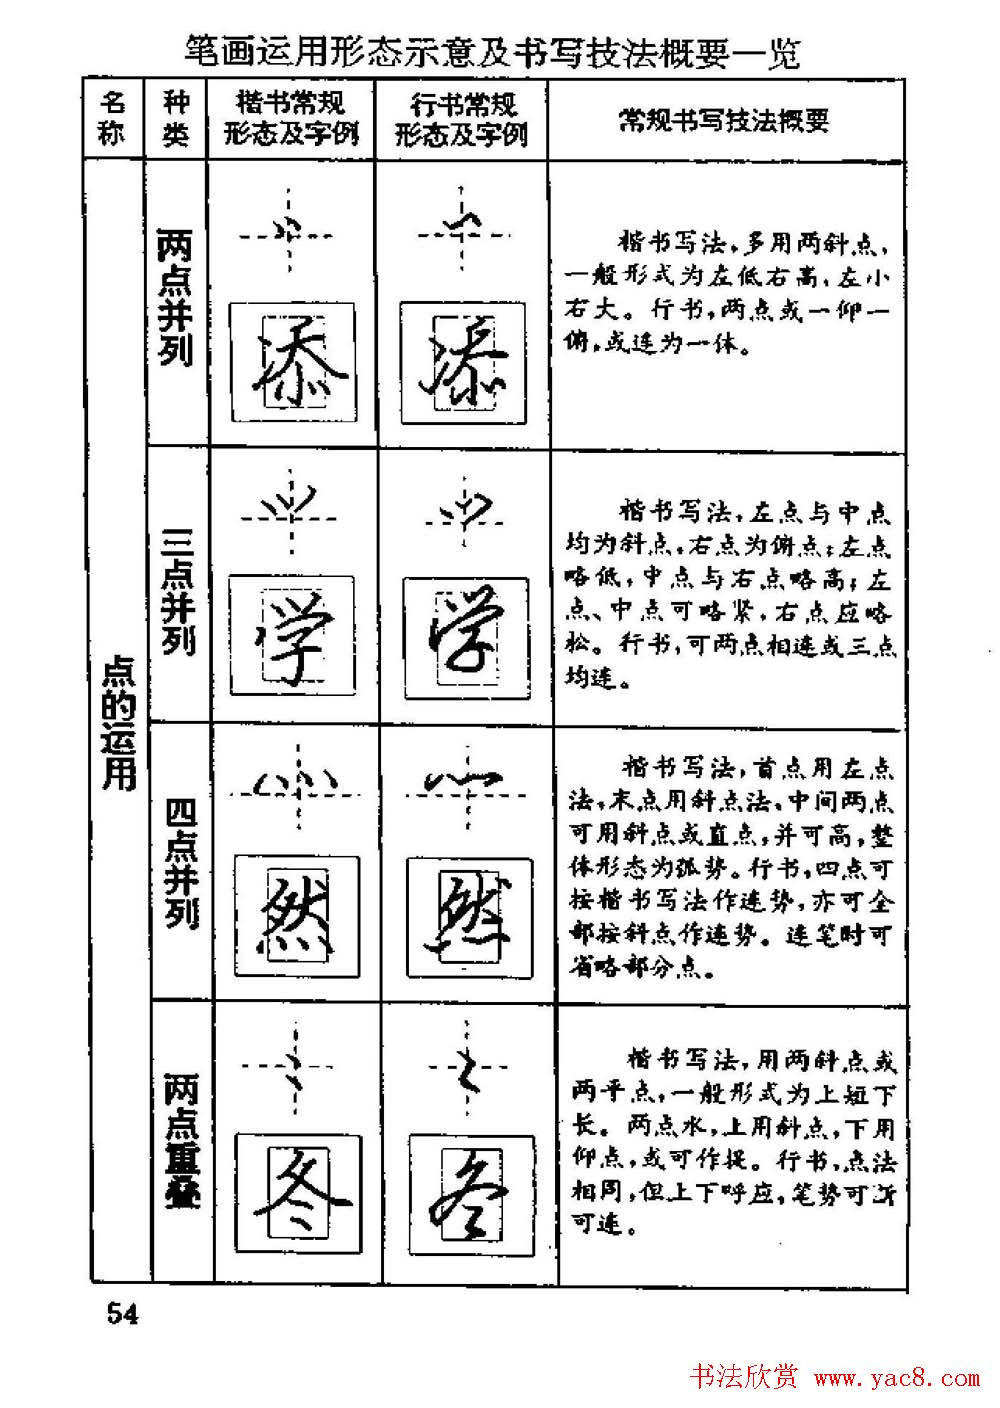 笔画运用形态示意及书写技法概要一览
名称
种类
楷书常规
形态及字例
行书常规
形态及字例
常规书写技法概要
点的运用
两点并列
添
添
楷书写法，多用两斜点，
一般形式为左低右高，左小
右大。行书，两点或一仰一
俯，或连为一体。
三点并列
学
学
楷书写法，左点与中点
均为斜点，右点为俯点；左点
略低，中点与右点略高；左
点、中点可略紧，右点应略
松。行书，可两点相连或三点
均连。
四点并列
然
然
楷书写法，首点用左点
法，末点用斜点法，中间两点
可用斜点或直点，并可高，整
体形态为弧势。行书，四点可
按楷书写法作连势，亦可全
部按斜点作连势。连笔时可
省略部分点。
两点重叠
冬
冬
楷书写法，用两斜点或
两平点，一般形式为上短下
长。两点水，上用斜点，下用
仰点，或可作提。行书，点法
相同，但上下呼应，笔势可断
可连。
54
书法欣赏 www.yac8.com